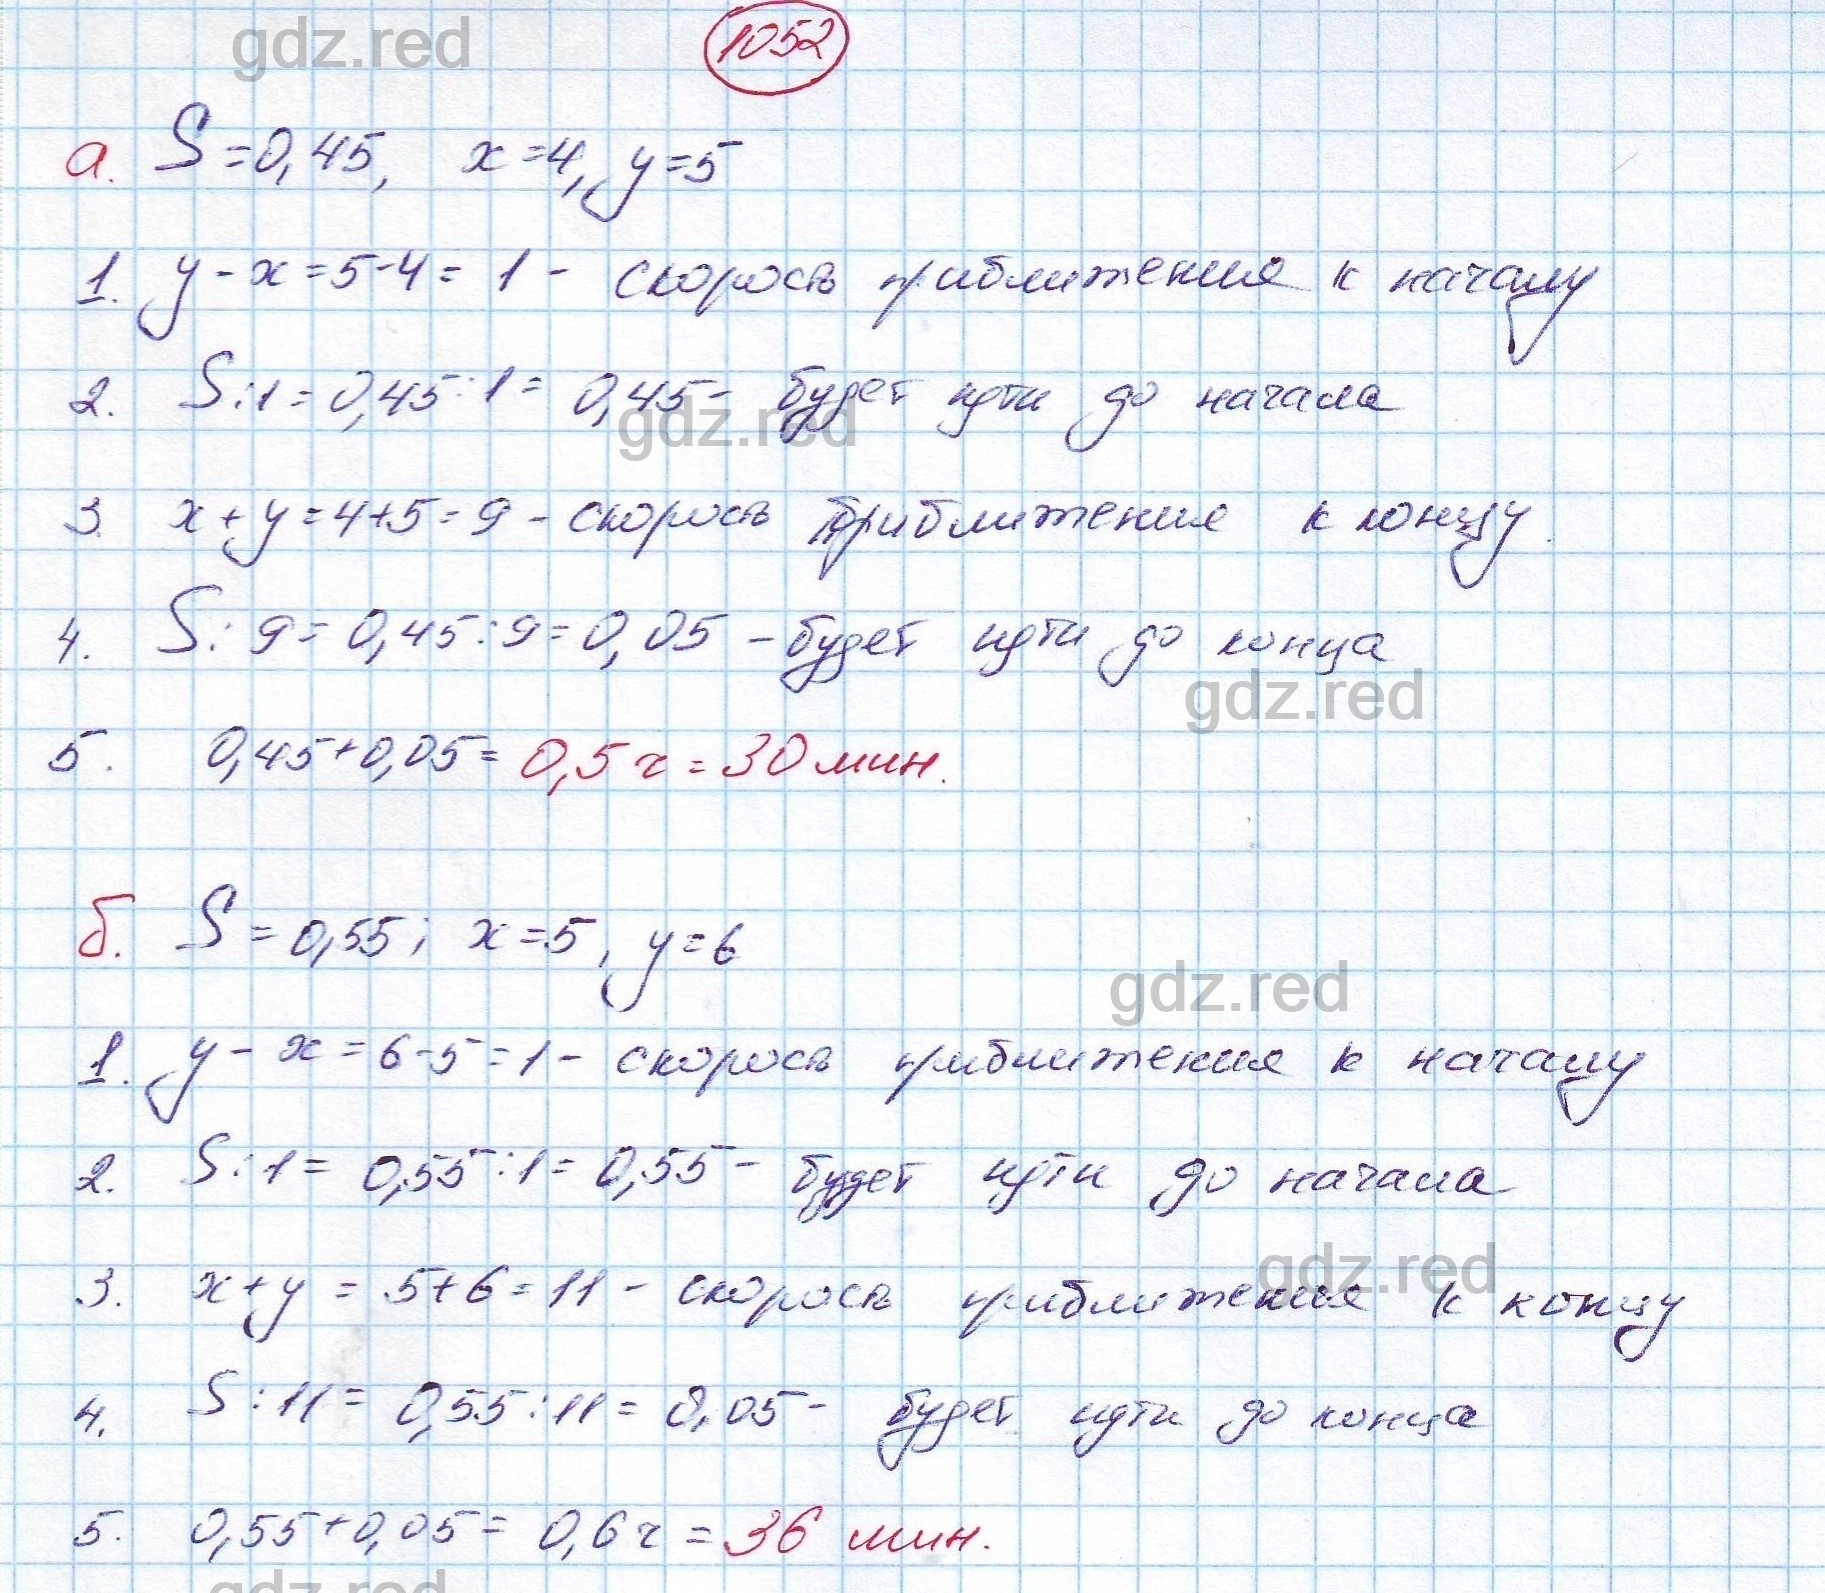 gdz.red 1052
а. S = 0,45, x = 4, y = 5
1. y - x = 5 - 4 = 1 - скорость приближения к началу
2. S : 1 = 0,45 : 1 = 0,45 - будет идти до начала
gdz.red
3. x + y = 4 + 5 = 9 - скорость приближения к концу.
4. S : 9 = 0,45 : 9 = 0,05 - будет идти до конца
gdz.red
5. 0,45 + 0,05 = 0,5 ч = 30 мин.
б. S = 0,55; x = 5, y = 6
gdz.red
1. y - x = 6 - 5 = 1 - скорость приближения к началу
2. S : 1 = 0,55 : 1 = 0,55 - будет идти до начала
gdz.red
3. x + y = 5 + 6 = 11 - скорость приближения к концу
4. S : 11 = 0,55 : 11 = 0,05 - будет идти до конца
5. 0,55 + 0,05 = 0,6 ч = 36 мин.
gdz.red